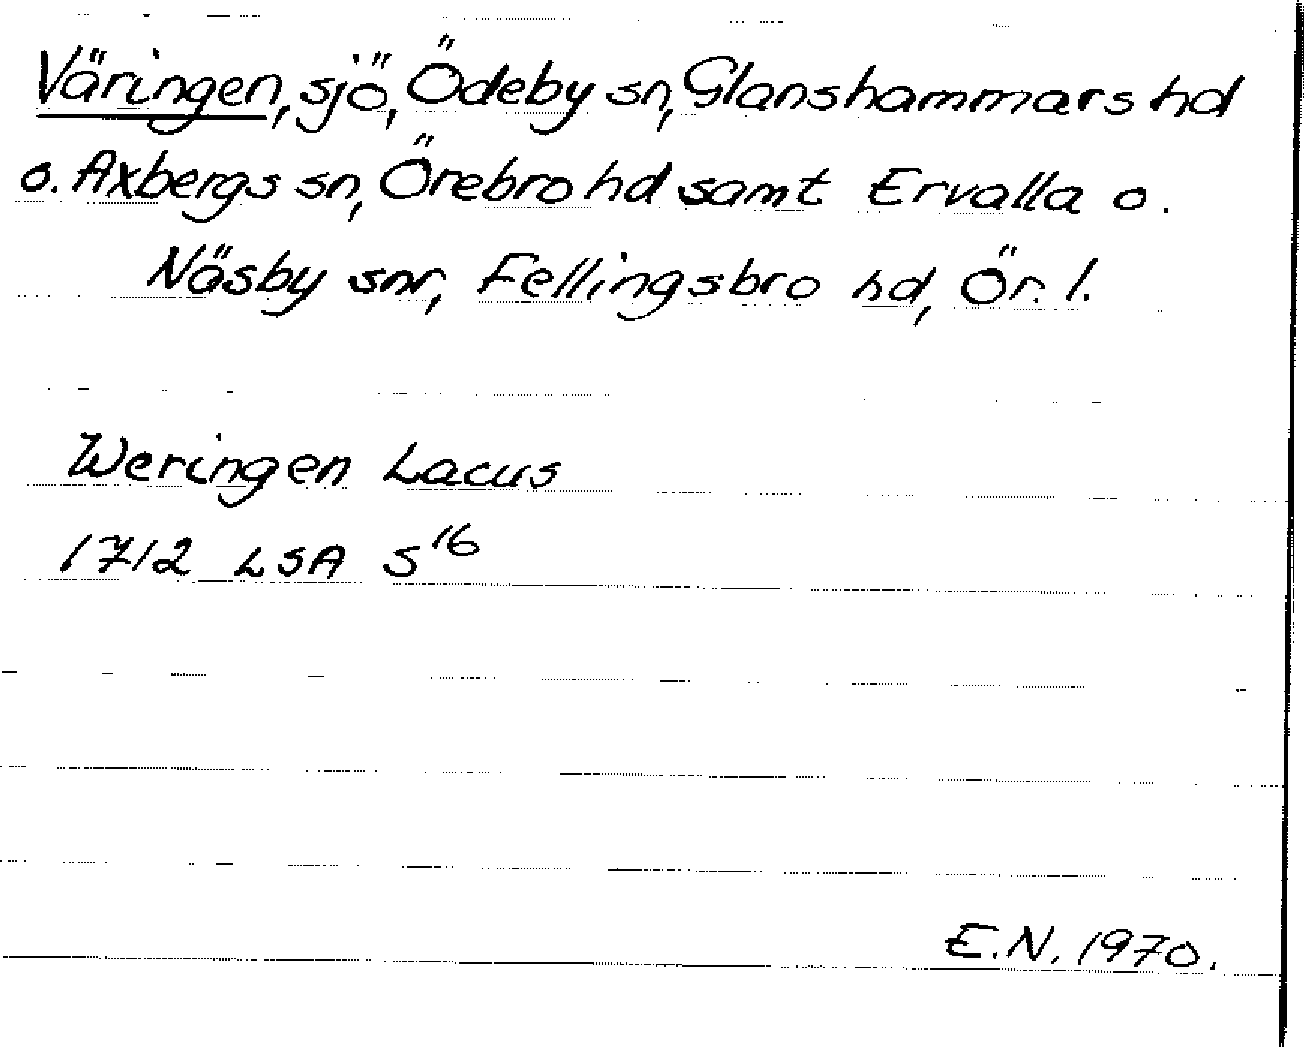 Väringen, sjö, Ödeby sn, Glanshammars hd
o. Axbergs sn, Örebro hd samt Ervalla o.
Näsby snr, Fellingsbro hd, Ör. l.
Weringen Lacus
1712 LSA S¹⁶
E.N. 1970.